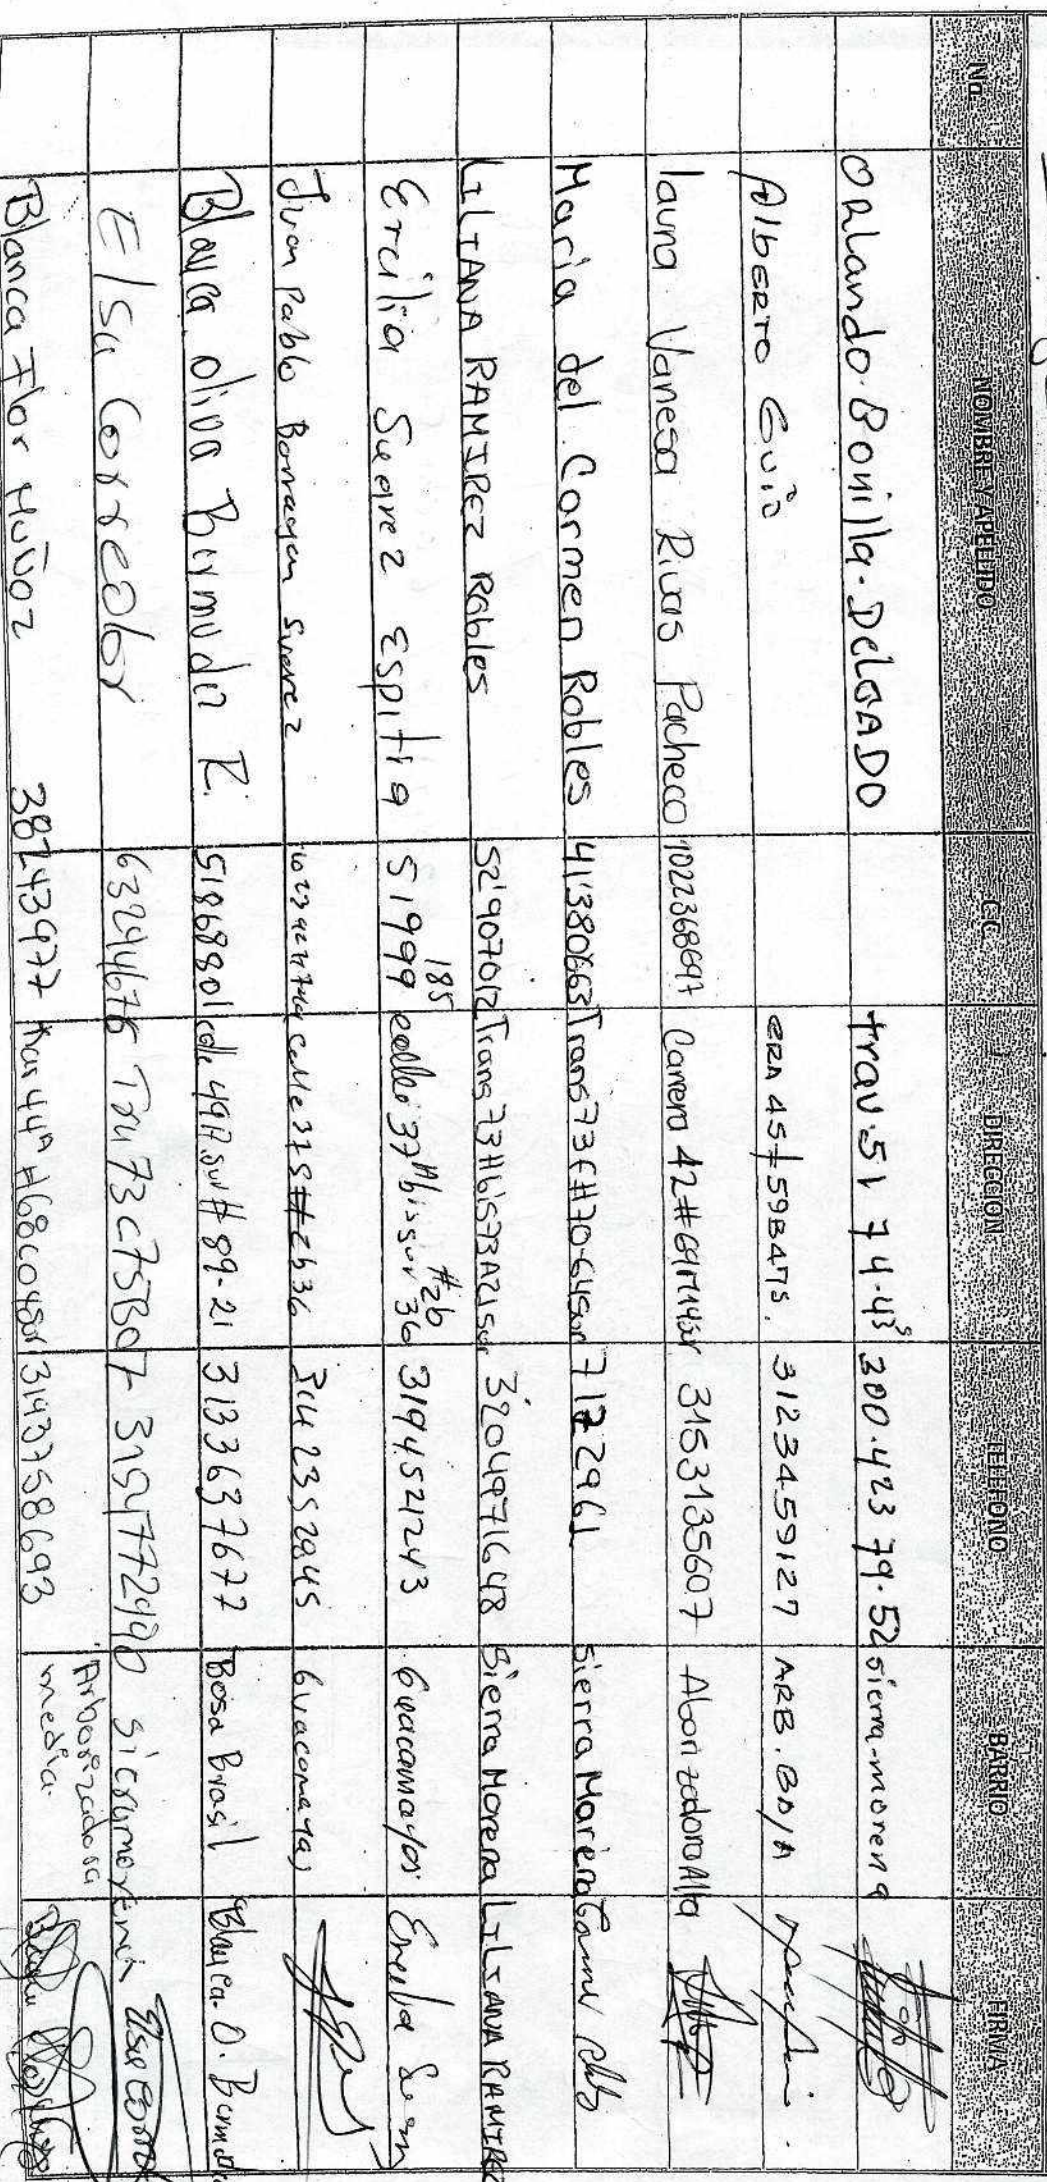 No. NOMBRE Y APELLIDO C.C. DIRECCION TELEFONO BARRIO FIRMA
ORLando Bonilla. DELGADO trav. 51 74-43 s 300.423 79.52 sierra-morena
AlbERTO GUIO CRA 45 # 59B47S. 3123459127 ARB. BD/A
laura Vanesa Rivas Pacheco 1022368697 Carrera 42 # 69 3153135607 Aborizadora Alta
Maria del Carmen Robles 41'380663 Trans 73 f #70-64sur 7172961 Sierra Morena
LILIANA RAMIREZ Robles 52'907012 Trans 73 H bis 73A21sur 3204971648 Sierra Morena LILIANA RAMIREZ
Ercilia Suarez Espitia 51999 185 calle 37 A bis sur #2b 36 3194521243 Guacamayos
Juan Pablo Barragan Suarez calle 37 S # 2b36 3142352845 Guacamayas
Blanca oliva Birmudez R. 51868801 calle 49A.sur # 89-21 3133637677 Bosa Brasil Blanca. O.
Elsa Correal 63244676 Trv 73c75B07 3194772490 sierra morena Elsa
Blanca Flor Muñoz 38243977 Kar 44A #68C04sur 3143758693 Arborizadora media.